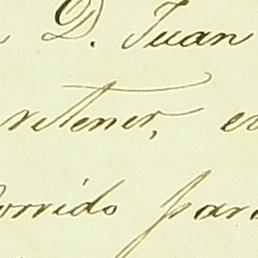 D. Juan
retener, e
orrido par